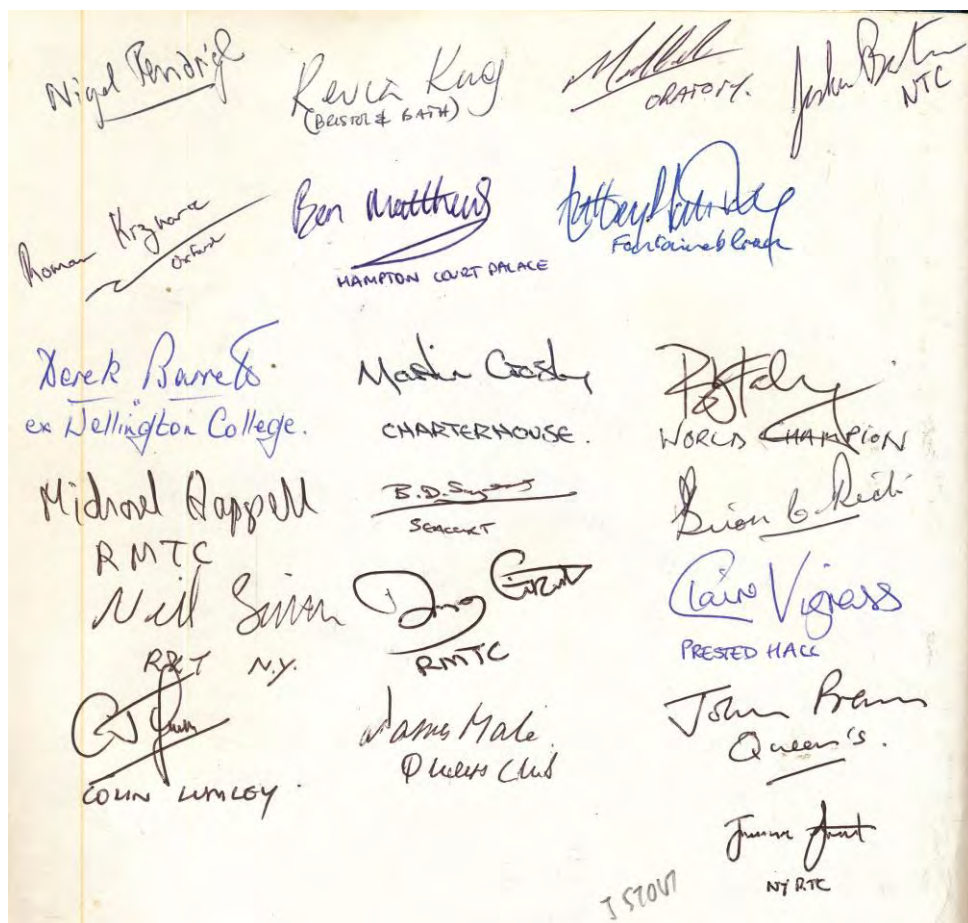 Nigel Pendrigh
Kevin King
(BRISTOL & BATH)
ORATORY.
NTC
Roman Krznaric
Oxford
Ben Matthews
HAMPTON COURT PALACE
Fontainebleau
Derek Barrett.
ex Wellington College.
Martin Crosby
CHARTERHOUSE.
WORLD CHAMPION
Michael Happell
RMTC
B.D.
SEACOURT
Brian
Neil
R&T N.Y.
Doug
RMTC
Claire Vigrass
PRESTED HALL
COLIN LUMLEY.
James Male.
Queens Club
John
Queen's.
NYRTC
J STOUT